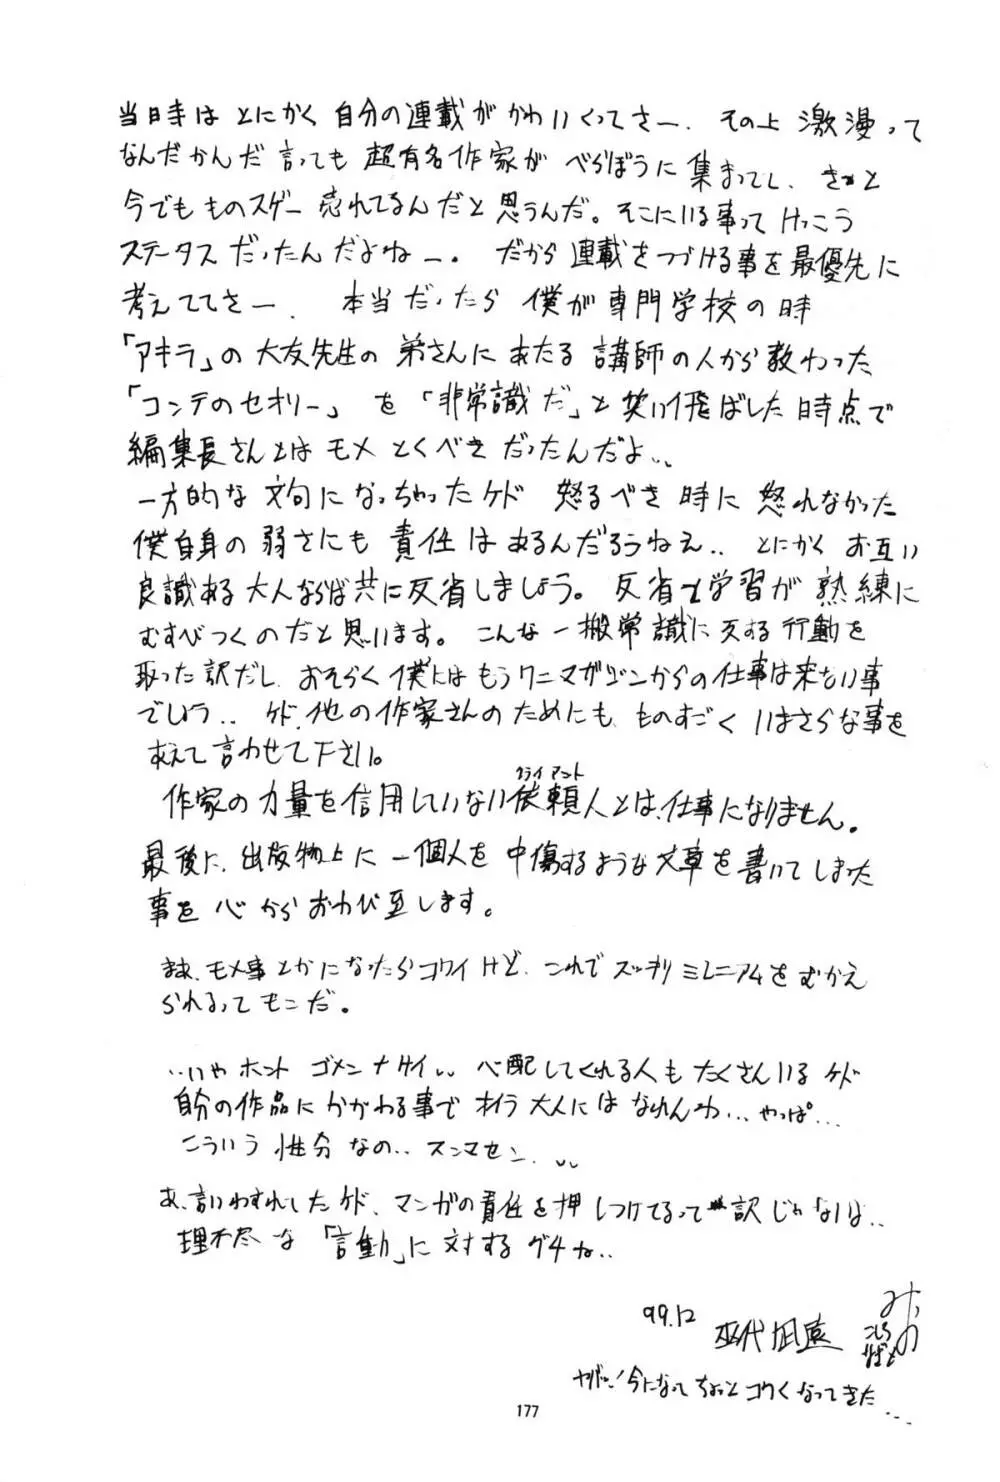 当日寺は とにかく 自分の連載が かわいくってさー. その上 激漫って
なんだかんだ 言っても 超有名作家が べらぼうに 集まってし、きっと
今でも ものスゲー 売れてるんだと 思うんだ。そこにいる事って けっこう
ステータス だったんだよねー. だから 連載を つづける事を 最優先に
考えててさー. 本当だったら 僕が 専門学校の時
「アキラ」の 大友先生の 弟さんに あたる 講師の人から 教わった
「コンテのセオリー」 を 「非常識だ」と 笑い飛ばした 時点で
編集長さんとは モメとくべき だったんだよ..
一方的な 文句に なっちゃったケド 怒るべき 時に 怒れなかった
僕自身の 弱さにも 責任は あるんだろうねえ.. とにかく お互い
良識ある 大人ならば 共に 反省しましょう。 反省と学習が 熟練に
むすびつくのだと 思います。 こんな 一搬常識に 反する 行動を
取った 訳だし、おそらく 僕には もう ワニマガジンからの 仕事は 来ない事
でしょう.. ケド、他の 作家さんの ためにも、ものすごく いまさらな事を
あえて 言わせて 下さい。
作家の 力量を 信用していない 依頼人とは、仕事になりません。
クライアント
最後に、出版物上に 一個人を 中傷するような 文章を 書いてしまった
事を 心から おわび 致します。
まあ、モメ事とかになったら コワイけど、これで スッキリ ミレニアムを むかえ
られるって モンだ。
..いや ホント ゴメンナサイ.. 心配してくれる人も たくさんいる ケド
自分の作品に かかわる事で オイラ 大人には なれんわ... やっぱ...
こういう 性分 なの.. スンマセン...
あ、言いわすれしたケド、マンガの責任を 押しつけてるって 訳じゃないよ..
理不尽な 「言動」に 対する グチね..
99.12 巫代凪遠
みの
こしろ
なぎと
ヤバい! 今になって ちょっと コワくなってきた...
177